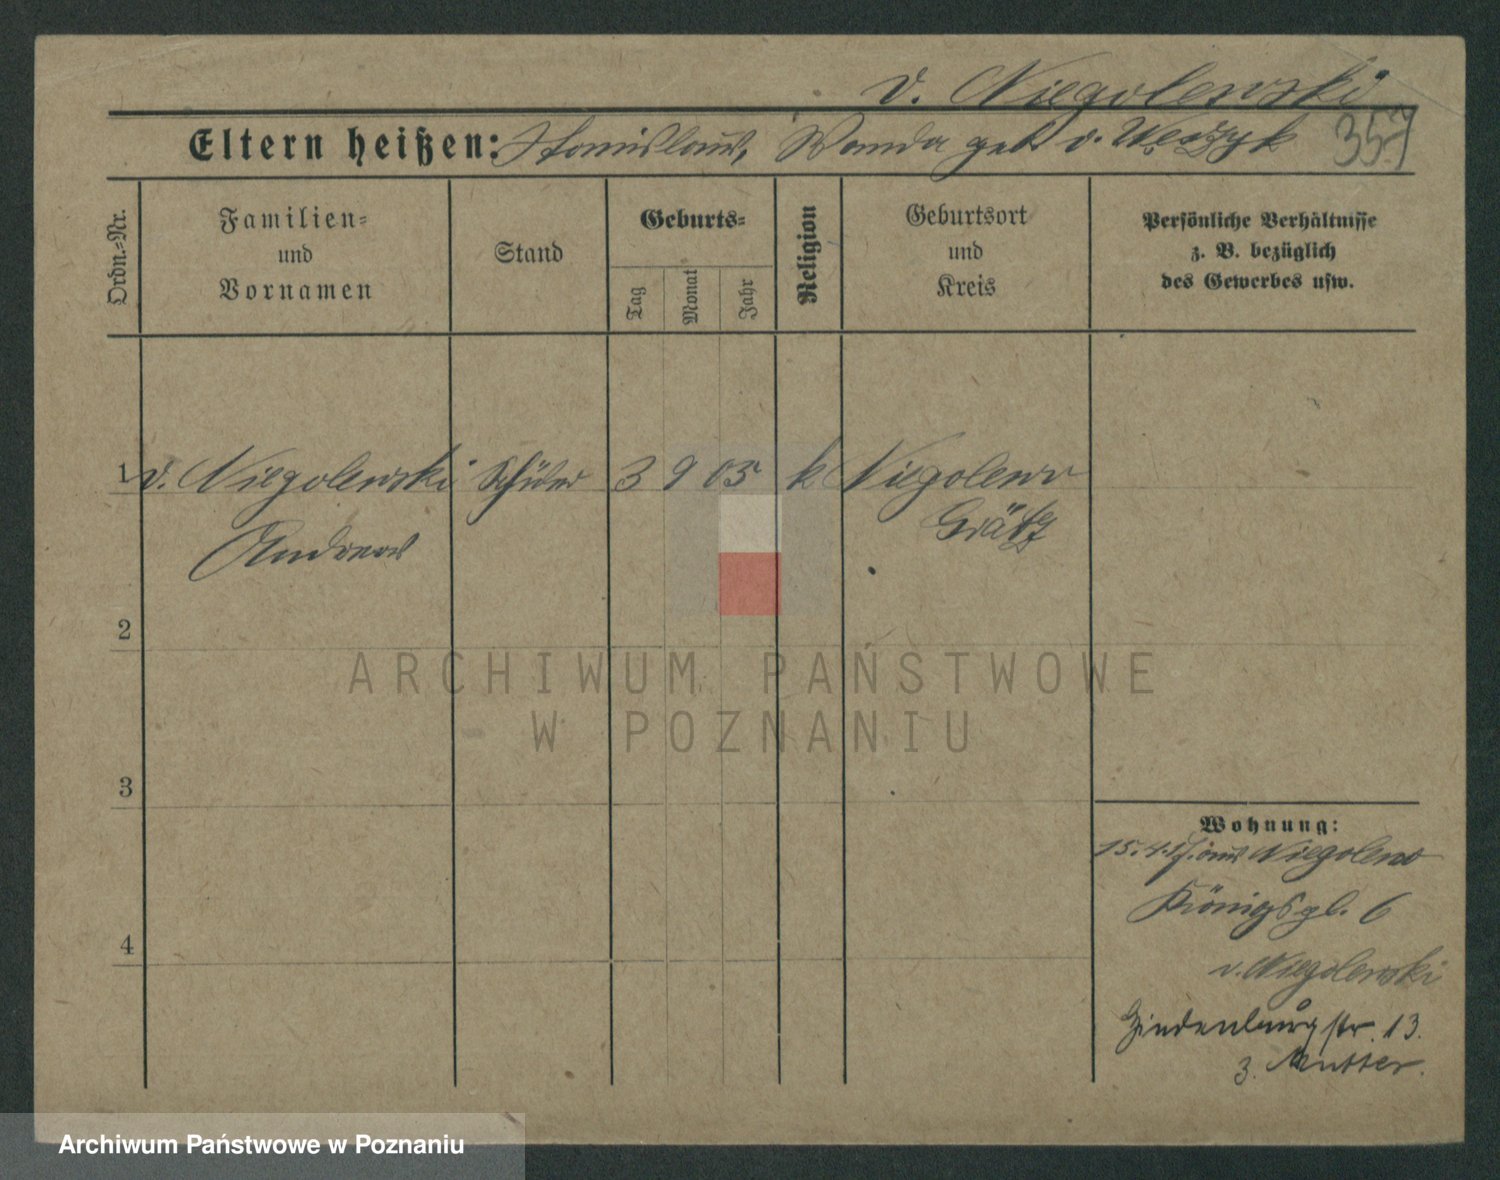 v. Niegolewski
357
Eltern heißen: Stanislaus, Wanda geb v. Węzyk
Ordn.=Nr.
Familien=
und
Vornamen
Stand
Geburts=
Tag
Monat
Jahr
Religion
Geburtsort
und
Kreis
Persönliche Verhältnisse
z. B. bezüglich
des Gewerbes usw.
1 v. Niegolewski Schüler 3 9 05 k Niegolewo
Andreas Grätz
2
3
4
Wohnung:
15.4.17. aus Niegolewo
Königspl. 6
v. Niegolewski
Hindenburgstr. 13.
z. Mutter.
ARCHIWUM PAŃSTWOWE
W POZNANIU
Archiwum Państwowe w Poznaniu